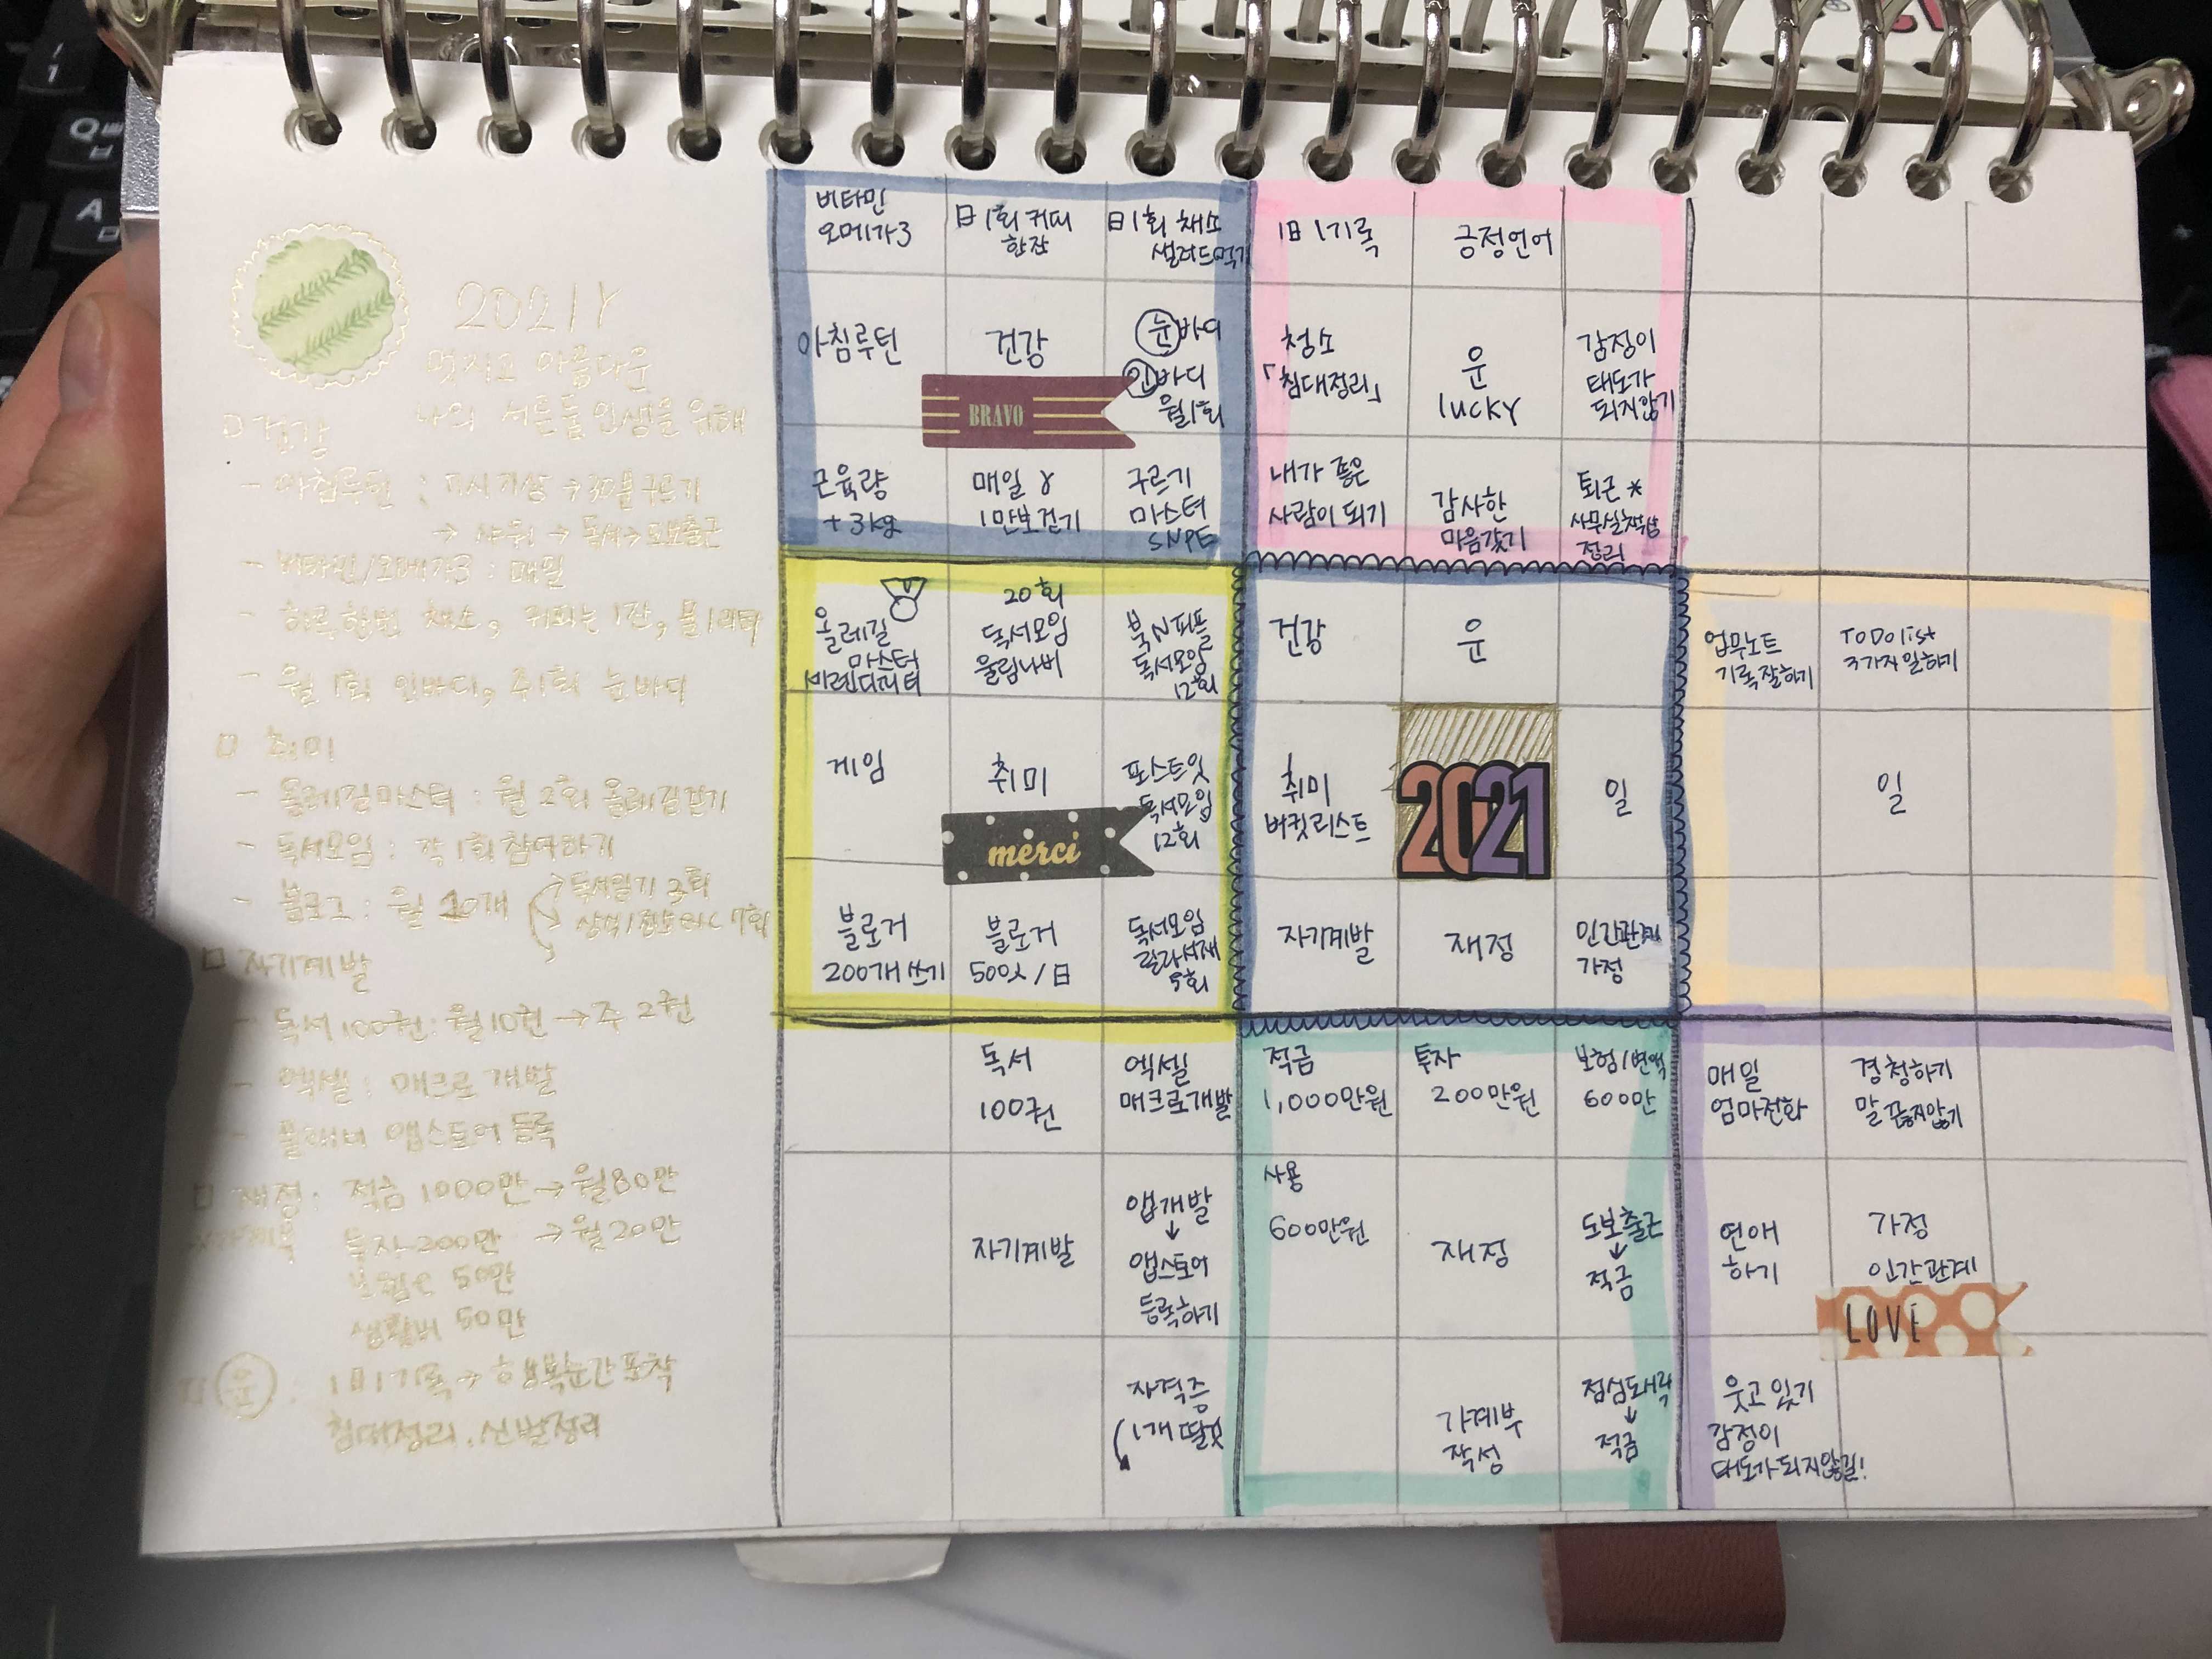 2021Y
멋지고 아름다운
나의 서른둘 인생을 위해
건강
- 아침루틴 : 기상 → 30분 구르기
→ 샤워 → 독서 → 도보출근
- 비타민/오메가3 : 매일
- 하루한번 채소, 커피는 1잔, 물 1리터
- 월 1회 인바디, 주1회 눈바디
취미
- 올레길마스터 : 월 2회 올레길걷기
- 독서모임 : 각 1회 참여하기
- 블로그 : 월 20개
독서일기 3회
7회
자기계발
- 독서 100권 : 월10권 → 주 2권
- 엑셀 : 매크로 개발
- 앱스토어 등록
재정 : 적금 1000만 → 월80만
투자 200만 → 월20만
보험 50만
생활비 50만
운 : 1日1기록 → 행복순간포착
침대정리, 신발정리
비타민
오메가3
日1회 커피
한잔
日1회 채소
샐러드먹기
아침루틴
건강
BRAVO
눈바디
인바디
월1회
근육량
+3kg
매일 Y
1만보걷기
구르기
마스터
SNPE
1日 1기록
긍정언어
청소
「침대정리」
운
lucky
감정이
태도가
되지않기
내가 좋은
사람이 되기
감사한
마음갖기
퇴근 *
사무실책상
정리
올레길
마스터
20회
독서모임
울림나비
북N피플
독서모임
12회
게임
취미
merci
포스트잇
독서모임
12회
블로거
200개 쓰기
블로거
50人/日
독서모임
랄라서재
5회
건강
운
취미
버킷리스트
2021
일
자기계발
재정
인간관계
가정
업무노트
기록잘하기
ToDolist
3가지일하기
일
독서
100권
엑셀
매크로개발
자기계발
앱개발
↓
앱스토어
등록하기
자격증
1개 딸것
적금
1,000만원
투자
200만원
보험/변액
600만
사용
600만원
재정
도보출근
↓
적금
가계부
작성
점심도시락
↓
적금
매일
엄마전화
경청하기
말 끊지않기
연애
하기
가정
인간관계
LOVE
웃고 있기
감정이
태도가 되지않길!